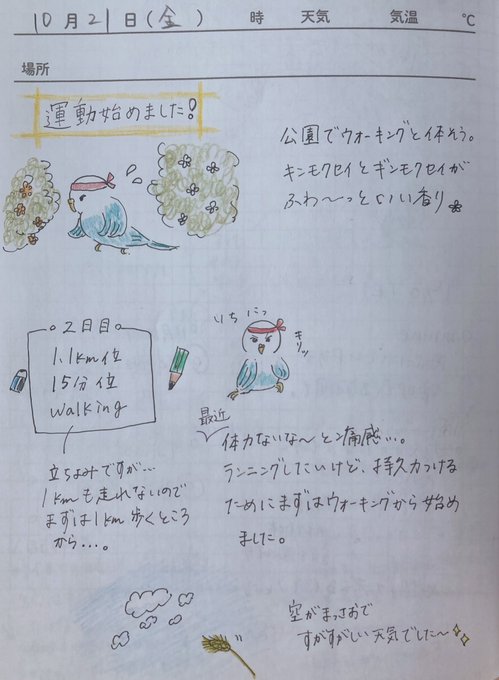 10月21日(金) 時 天気 気温 ℃
場所
運動始めました!
公園でウォーキングと体そう。
キンモクセイとギンモクセイが
ふわ〜っといい香り
いち にっ
キリッ
2日目
1.1km位
15分位
walking
立ちよみですが…
1kmも走れないので
まずは1km歩くところ
から…。
最近
体力ないな〜と痛感…。
ランニングしたいけど、持久力つける
ためにまずはウォーキングから始め
ました。
空がまっさおで
すがすがしい天気でした〜